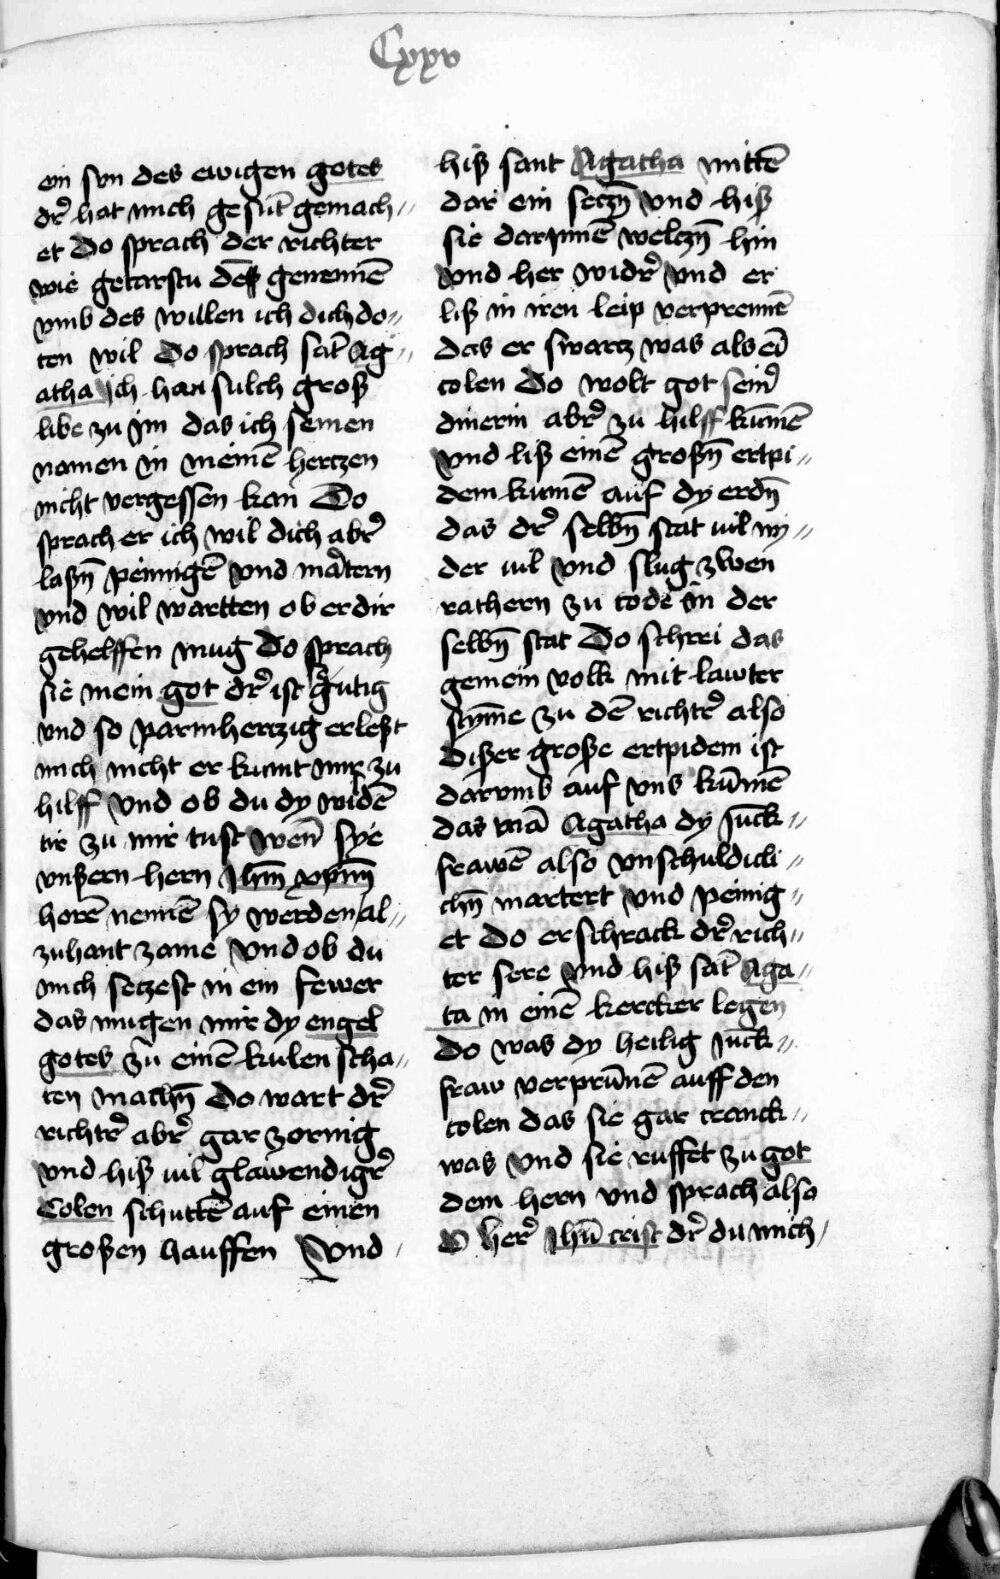 Cxxv
ein sun des ewigen gotes
dr̄ hat mich gesūt gemach〃
et Do sprach der richter
wie getarstu dē genennē
vmb des willen ich dich do〃
ten wil Do sprach sāt Ag〃
atha ich han sulch groß
libe zu im das ich seinen
namen in meinē hertzen
nicht vergessen kan Do
sprach er ich wil dich abr̄
laßn̄ peinnigē vnd martern
vnd wil wartten ob er dir
gehelffen mug Do sprach
sie mein got dr̄ ist gutig
vnd so parmhertzig er leßt
mich nicht er kumt mir zu
hilff vnd ob du dy wildē
tir zu mir tust wen̄ sye
vnßern hern Jhm̄ xpm̄
horē nennē sy werden al〃
zuhant zame vnd ob du
mich setzest in ein fewer
das mugen mir dy engel
gotes zu einē kulen scha〃
ten machn̄ Do wart dr̄
richtr̄ abr̄ gar zornig
vnd hiß vil glawendigr̄
Colen schuttē auf einen
großen hauffen Vnd
hiß sant Agatha mittē
dar ein seczn̄ vnd hiß
sie darjnnē welczn̄ hin
vnd her widr̄ vnd er
liß in iren leip verprennē
das er swartz was als eī
colen Do wolt got seinr̄
dinerin abr̄ zu hilff kūmē
vnd liß einē großn̄ ertpi〃
dem kumē auf dy erdn̄
das dr̄ selbn̄ stat vil ni〃
der vil vnd slug zwen
rathern zu tode in der
selbn̄ stat Do schrei das
gemein volk mit lawter
stym̄e zu dē richtr̄ also
dißer große ertpidem ist
darvmb auf vns kūmē
das mā Agatha dy Jūck〃
frawē also vnschuldicli〃
chn̄ martert vnd peinig〃
et Do erschrack dr̄ rich〃
ter sere vnd hiß sāt Aga〃
ta in einē kercker legen
Do was dy heilig Jūck〃
fraw verprūnē auff den
colen das sie gar cranck〃
was vnd sie ruffet zu got
dem hern vnd sprach also
O herr̄ Jhū crist dr̄ du mich